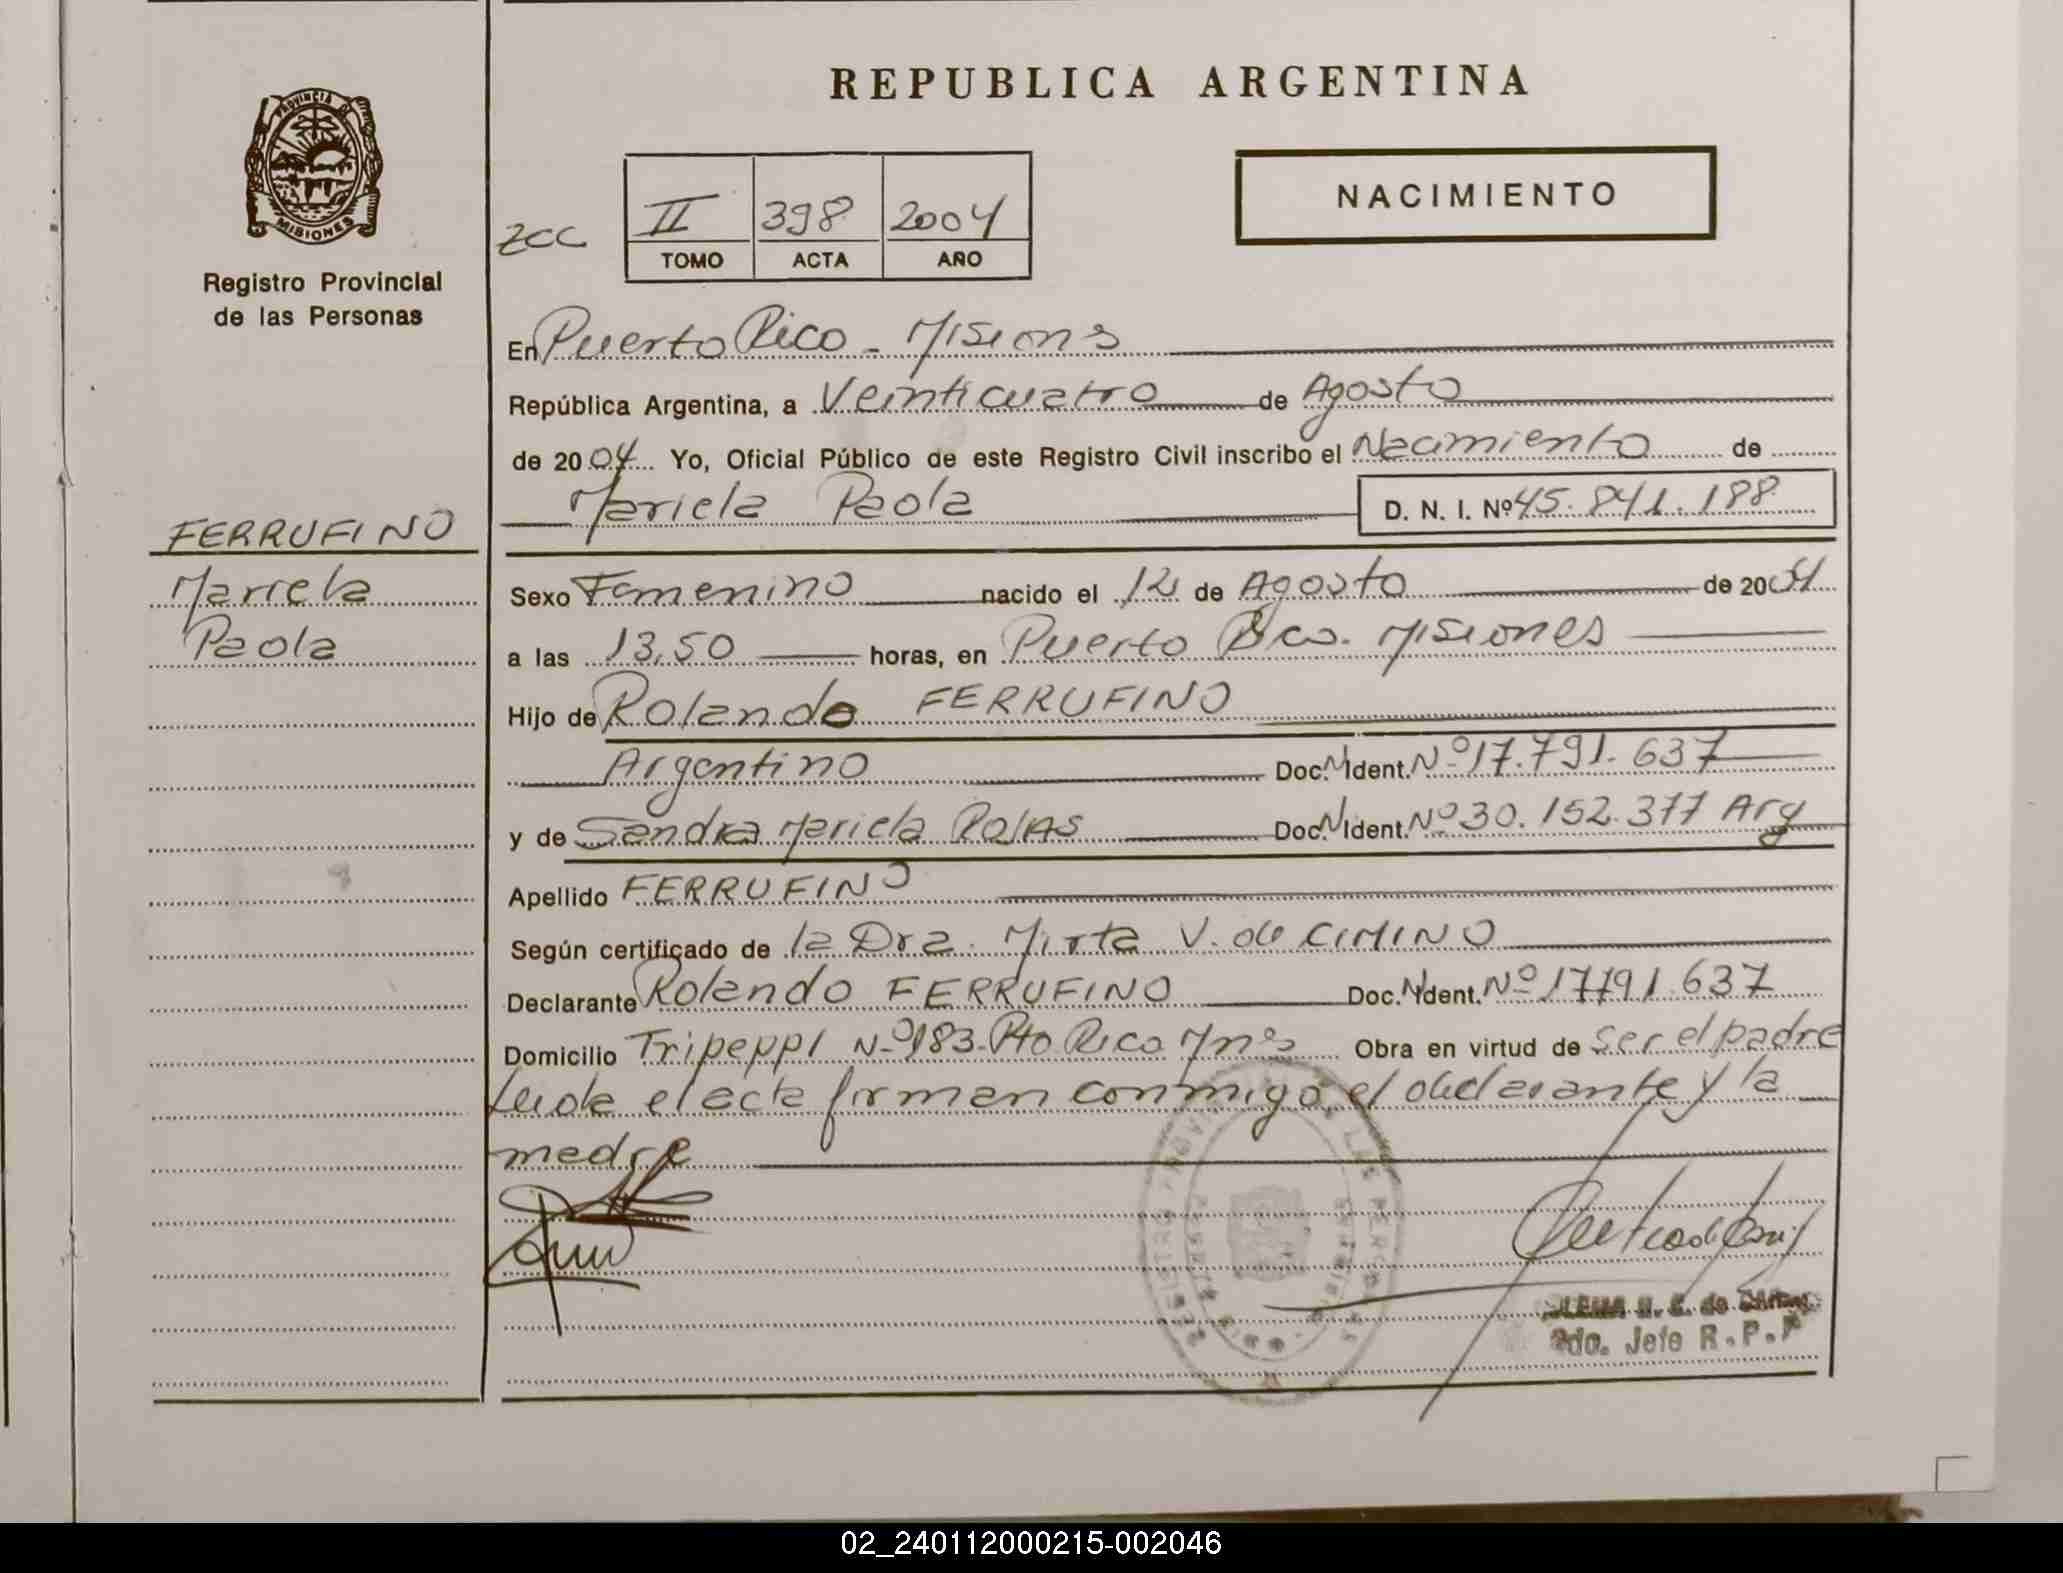 REPUBLICA ARGENTINA
PROVINCIA DE MISIONES
Registro Provincial
de las Personas
NACIMIENTO
II 398 2004
TOMO ACTA AÑO
En Puerto Rico - Misions
República Argentina, a Veinticuatro de Agosto
de 2004 Yo, Oficial Público de este Registro Civil inscribo el Nacimiento de
Mariela Paola D. N. I. Nº 45.841.188
FERRUFINO
Mariela
Paola
Sexo Femenino nacido el 12 de Agosto de 2004
a las 13,50 horas, en Puerto Rico. Misiones
Hijo de Rolando FERRUFINO
Argentino Doc. N Ident. Nº 17.791.637
y de Sandra Mariela ROJAS Doc. N Ident. Nº 30.152.377 Arg
Apellido FERRUFINO
Según certificado de la Dra. Mirta V. de CIMINO
Declarante Rolando FERRUFINO Doc. N Ident. Nº 17791.637
Domicilio Tripeppi Nº 183 Pto Rico Mnes Obra en virtud de ser el padre
Leida el acta firman conmigo, el declarante y la
madre
REGISTRO PROVINCIAL DE LAS PERSONAS
2do. Jefe R.P.P
02_240112000215-002046